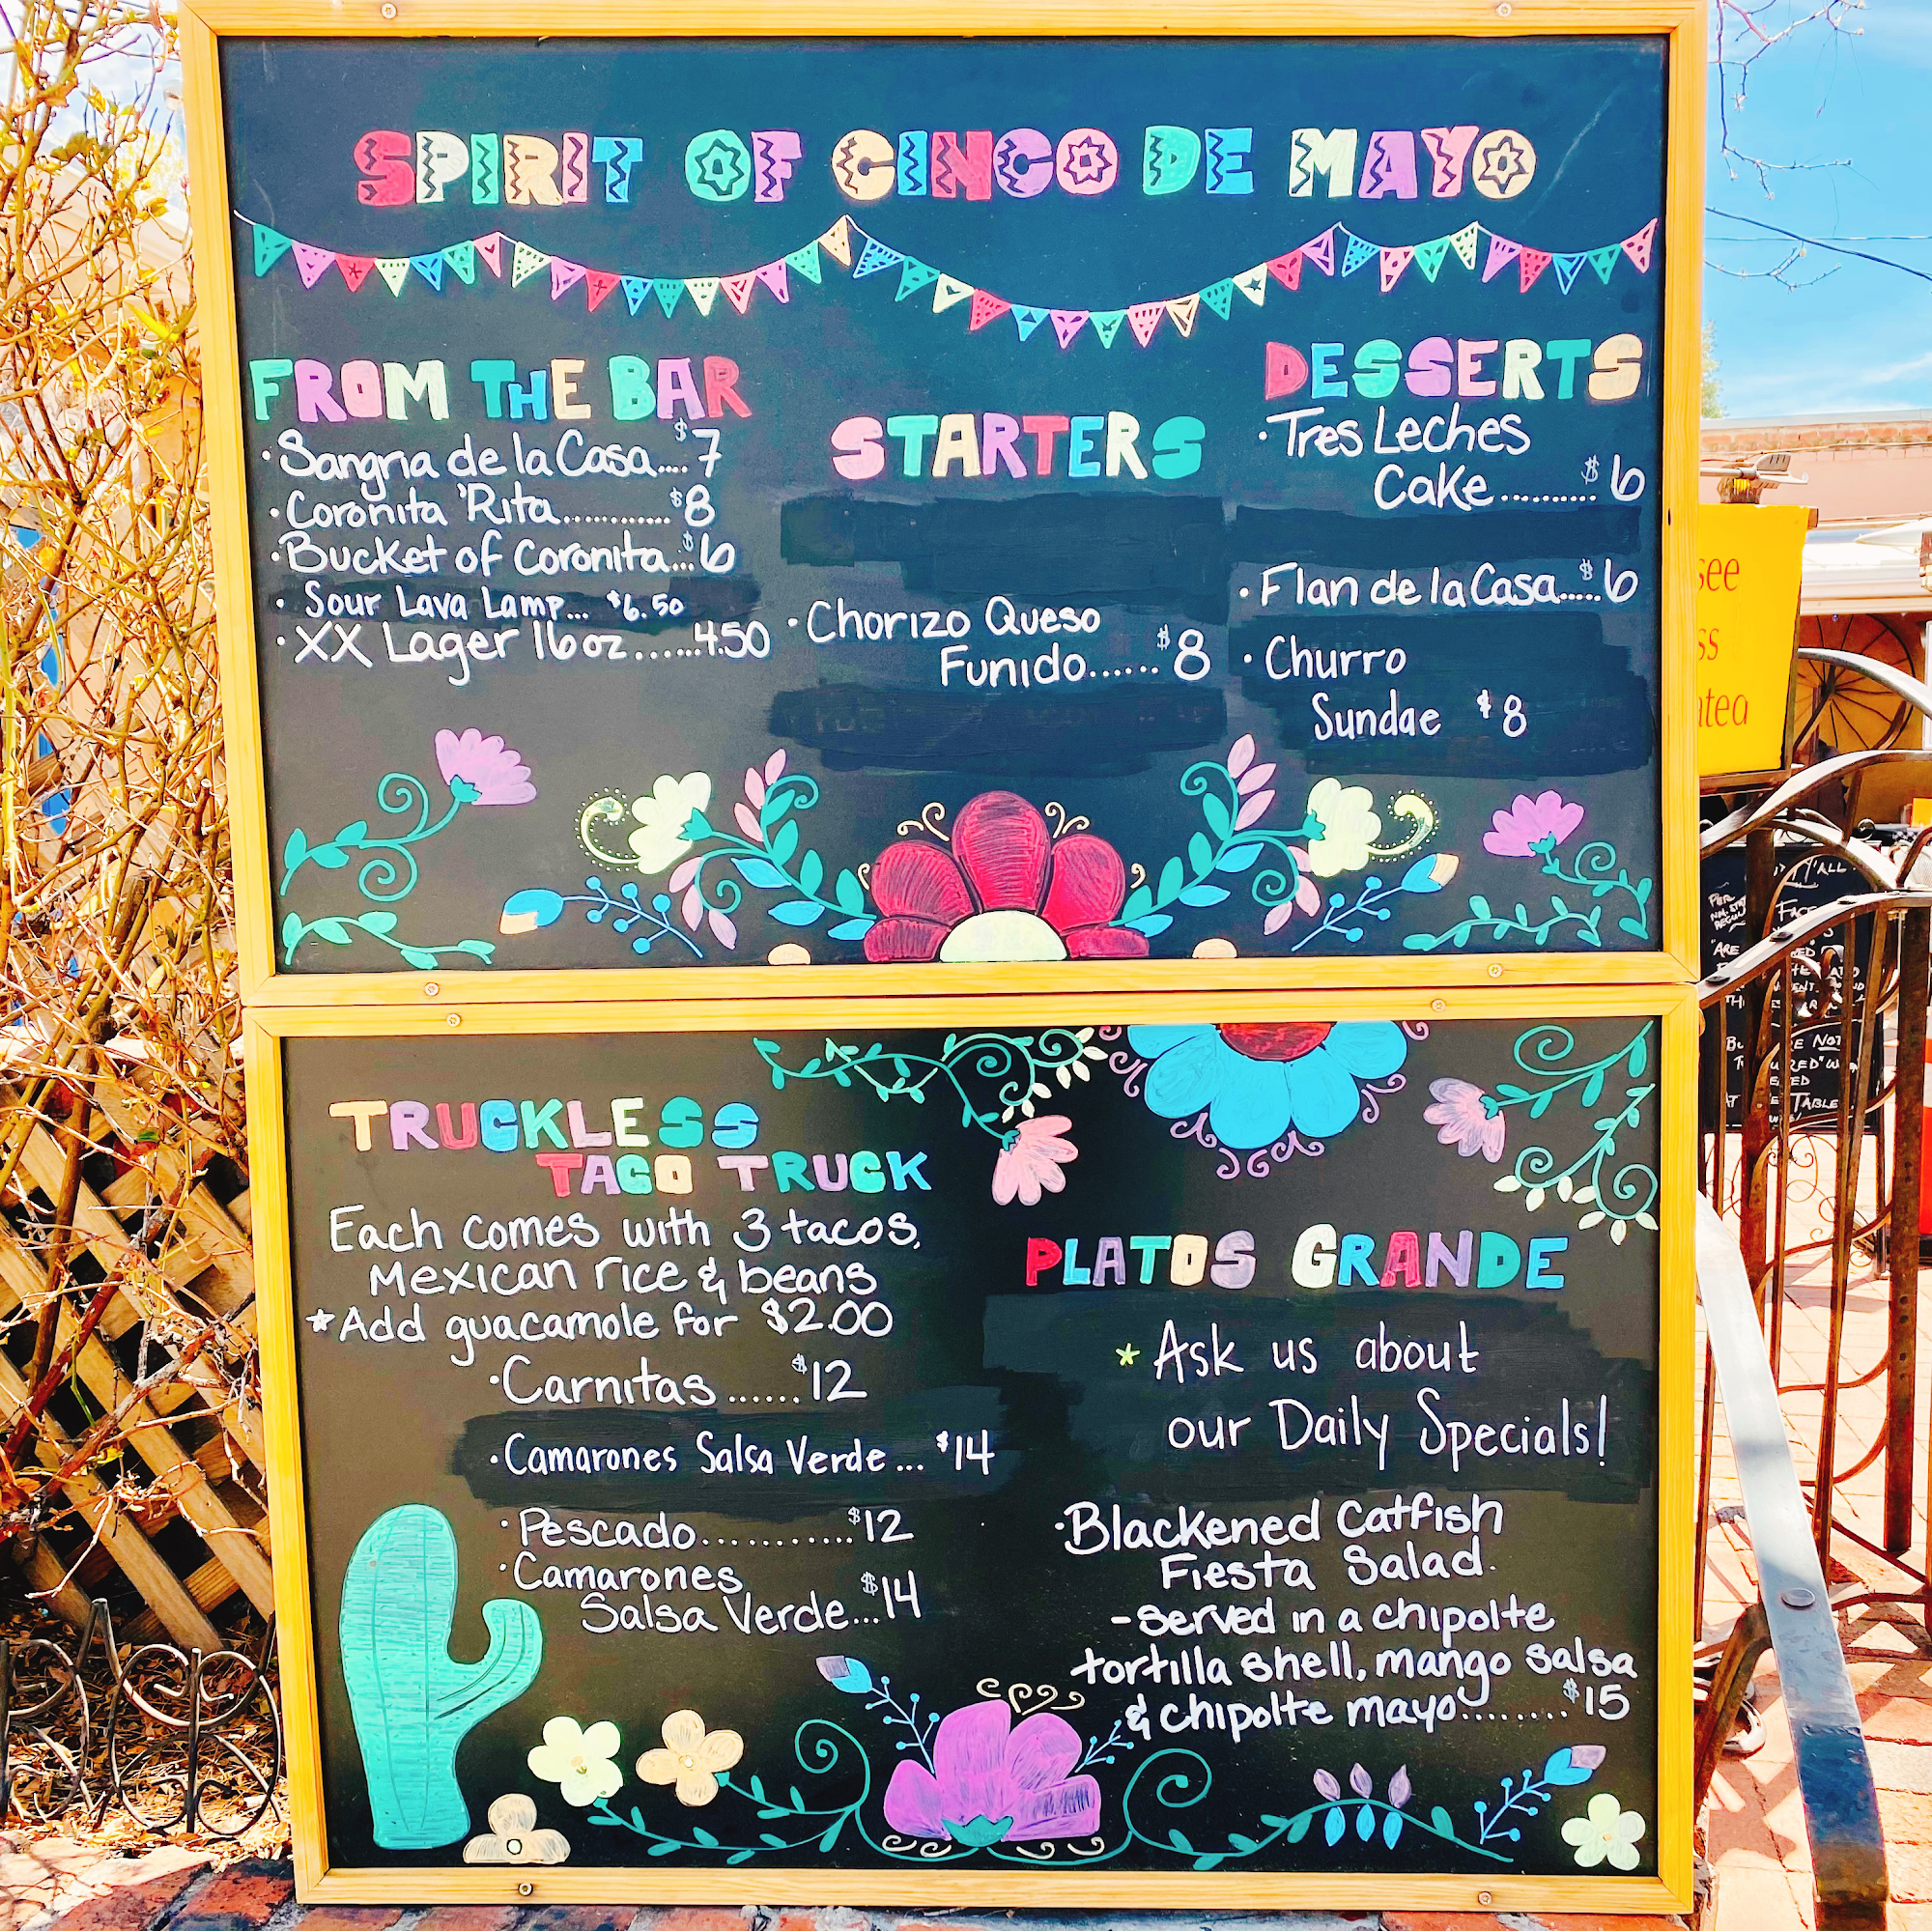 SPIRIT OF CINCO DE MAYO
FROM THE BAR
·Sangria de la Casa....$7
·Coronita 'Rita............$8
·Bucket of Coronita...$6
· Sour Lava Lamp... $6.50
·XX Lager 16oz......4.50
STARTERS
·Chorizo Queso
Funido......$8
DESSERTS
·Tres Leches
Cake..........$6
·Flan de la Casa.....$6
·Churro
Sundae $8
TRUCKLESS
TACO TRUCK
Each comes with 3 tacos,
Mexican rice & beans
*Add guacamole for $2.00
·Carnitas......$12
·Camarones Salsa Verde... $14
·Pescado...........$12
·Camarones
Salsa Verde...$14
PLATOS GRANDE
* Ask us about
our Daily Specials!
·Blackened Catfish
Fiesta Salad.
-served in a chipolte
tortilla shell, mango salsa
& chipolte mayo........$15
see